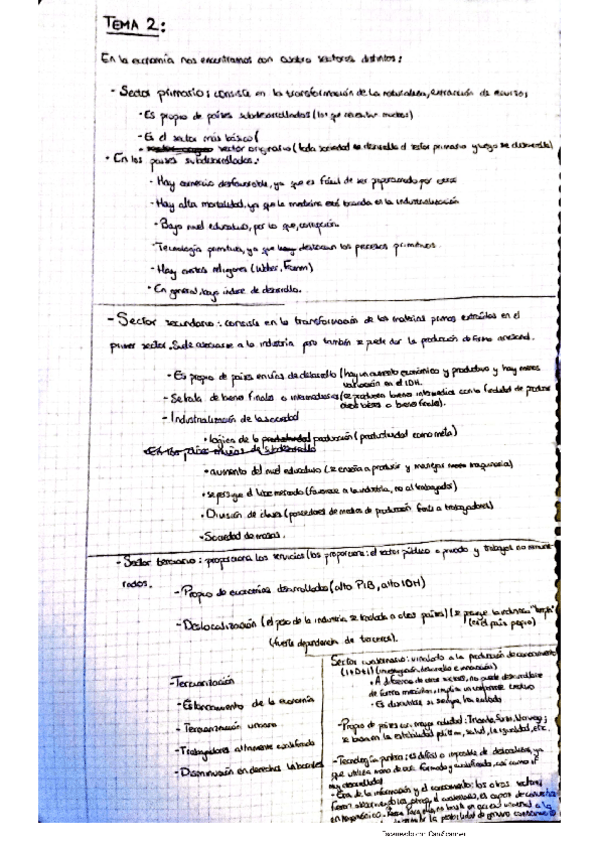 TEMA 2:
En la economía nos encontramos con cuatro sectores distintos:
- Sector primario: consiste en la transformación de la naturaleza, extracción de recursos
· Es propio de países subdesarrollados (los que necesitan mucho)
- Es el sector más básico (
sector originario (toda sociedad desarrolla el sector primario y luego se desarrolla)
· En los países subdesarrollados:
· Hay comercio desfavorable, ya que es fácil de ser por otros
· Hay alta mortalidad, ya que la medicina está basada en la industrialización
· Bajo nivel educativo, por lo que, corrupción.
· Tecnología primitiva, ya que destacan los procesos primitivos.
- Hay religiones (Weber, Fromm)
· En general, bajo índice de desarrollo.
- Sector secundario: consiste en la transformación de las materias primas extraídas en el
primer sector. Suele asociarse a la industria pero también se puede dar la producción de forma artesanal.
- Es propio de países en vías de desarrollo (hay un aumento económico y productivo y hay
variación en el IDH.
- Se habla de bienes finales o intermediarios (se producen bienes intermedios con la finalidad de producir
otros bienes o bienes finales).
- Industrialización de la sociedad
· lógica de la producción (productividad como meta)
· aumento del nivel educativo (se enseña a producir y manejar maquinaria)
· se persigue el libre mercado (favorece a la industria, no al trabajador)
· División de clases (poseedores de medios de producción frente a trabajadores)
· Sociedad de masas.
- Sector terciario: proporciona los servicios (los proporciona: el sector público o privado y trabajos no remune-
rados.
- Propio de economías desarrolladas (alto PIB, alto IDH)
- Deslocalización (el peso de la industria se traslada a otros países) (se persigue la industria "limpia"
(en el país propio)
(fuerte dependencia de terceros).
- Terciarización
- Estancamiento de la economía
- Terciarización urbana
- Trabajadores altamente cualificados
- Disminución en derechos laborales
Sector cuaternario: vinculado a la producción de conocimiento
(I+D+I) (investigación, desarrollo e innovación)
· A diferencia de otros sectores, no puede desarrollarse
de forma mecánica, implica un componente creativo
· Es discutible si siempre ha existido
- Propio de países con mayor calidad: Irlanda, Suiza, Noruega;
se basa en la estabilidad política, salud, la igualdad, etc.
- Tecnología puntera: es difícil o imposible de deslocalizar, ya
que utiliza mano de obra formada y cualificada, así como
muy desarrollada
- Era de la información y el conocimiento: los otros sectores